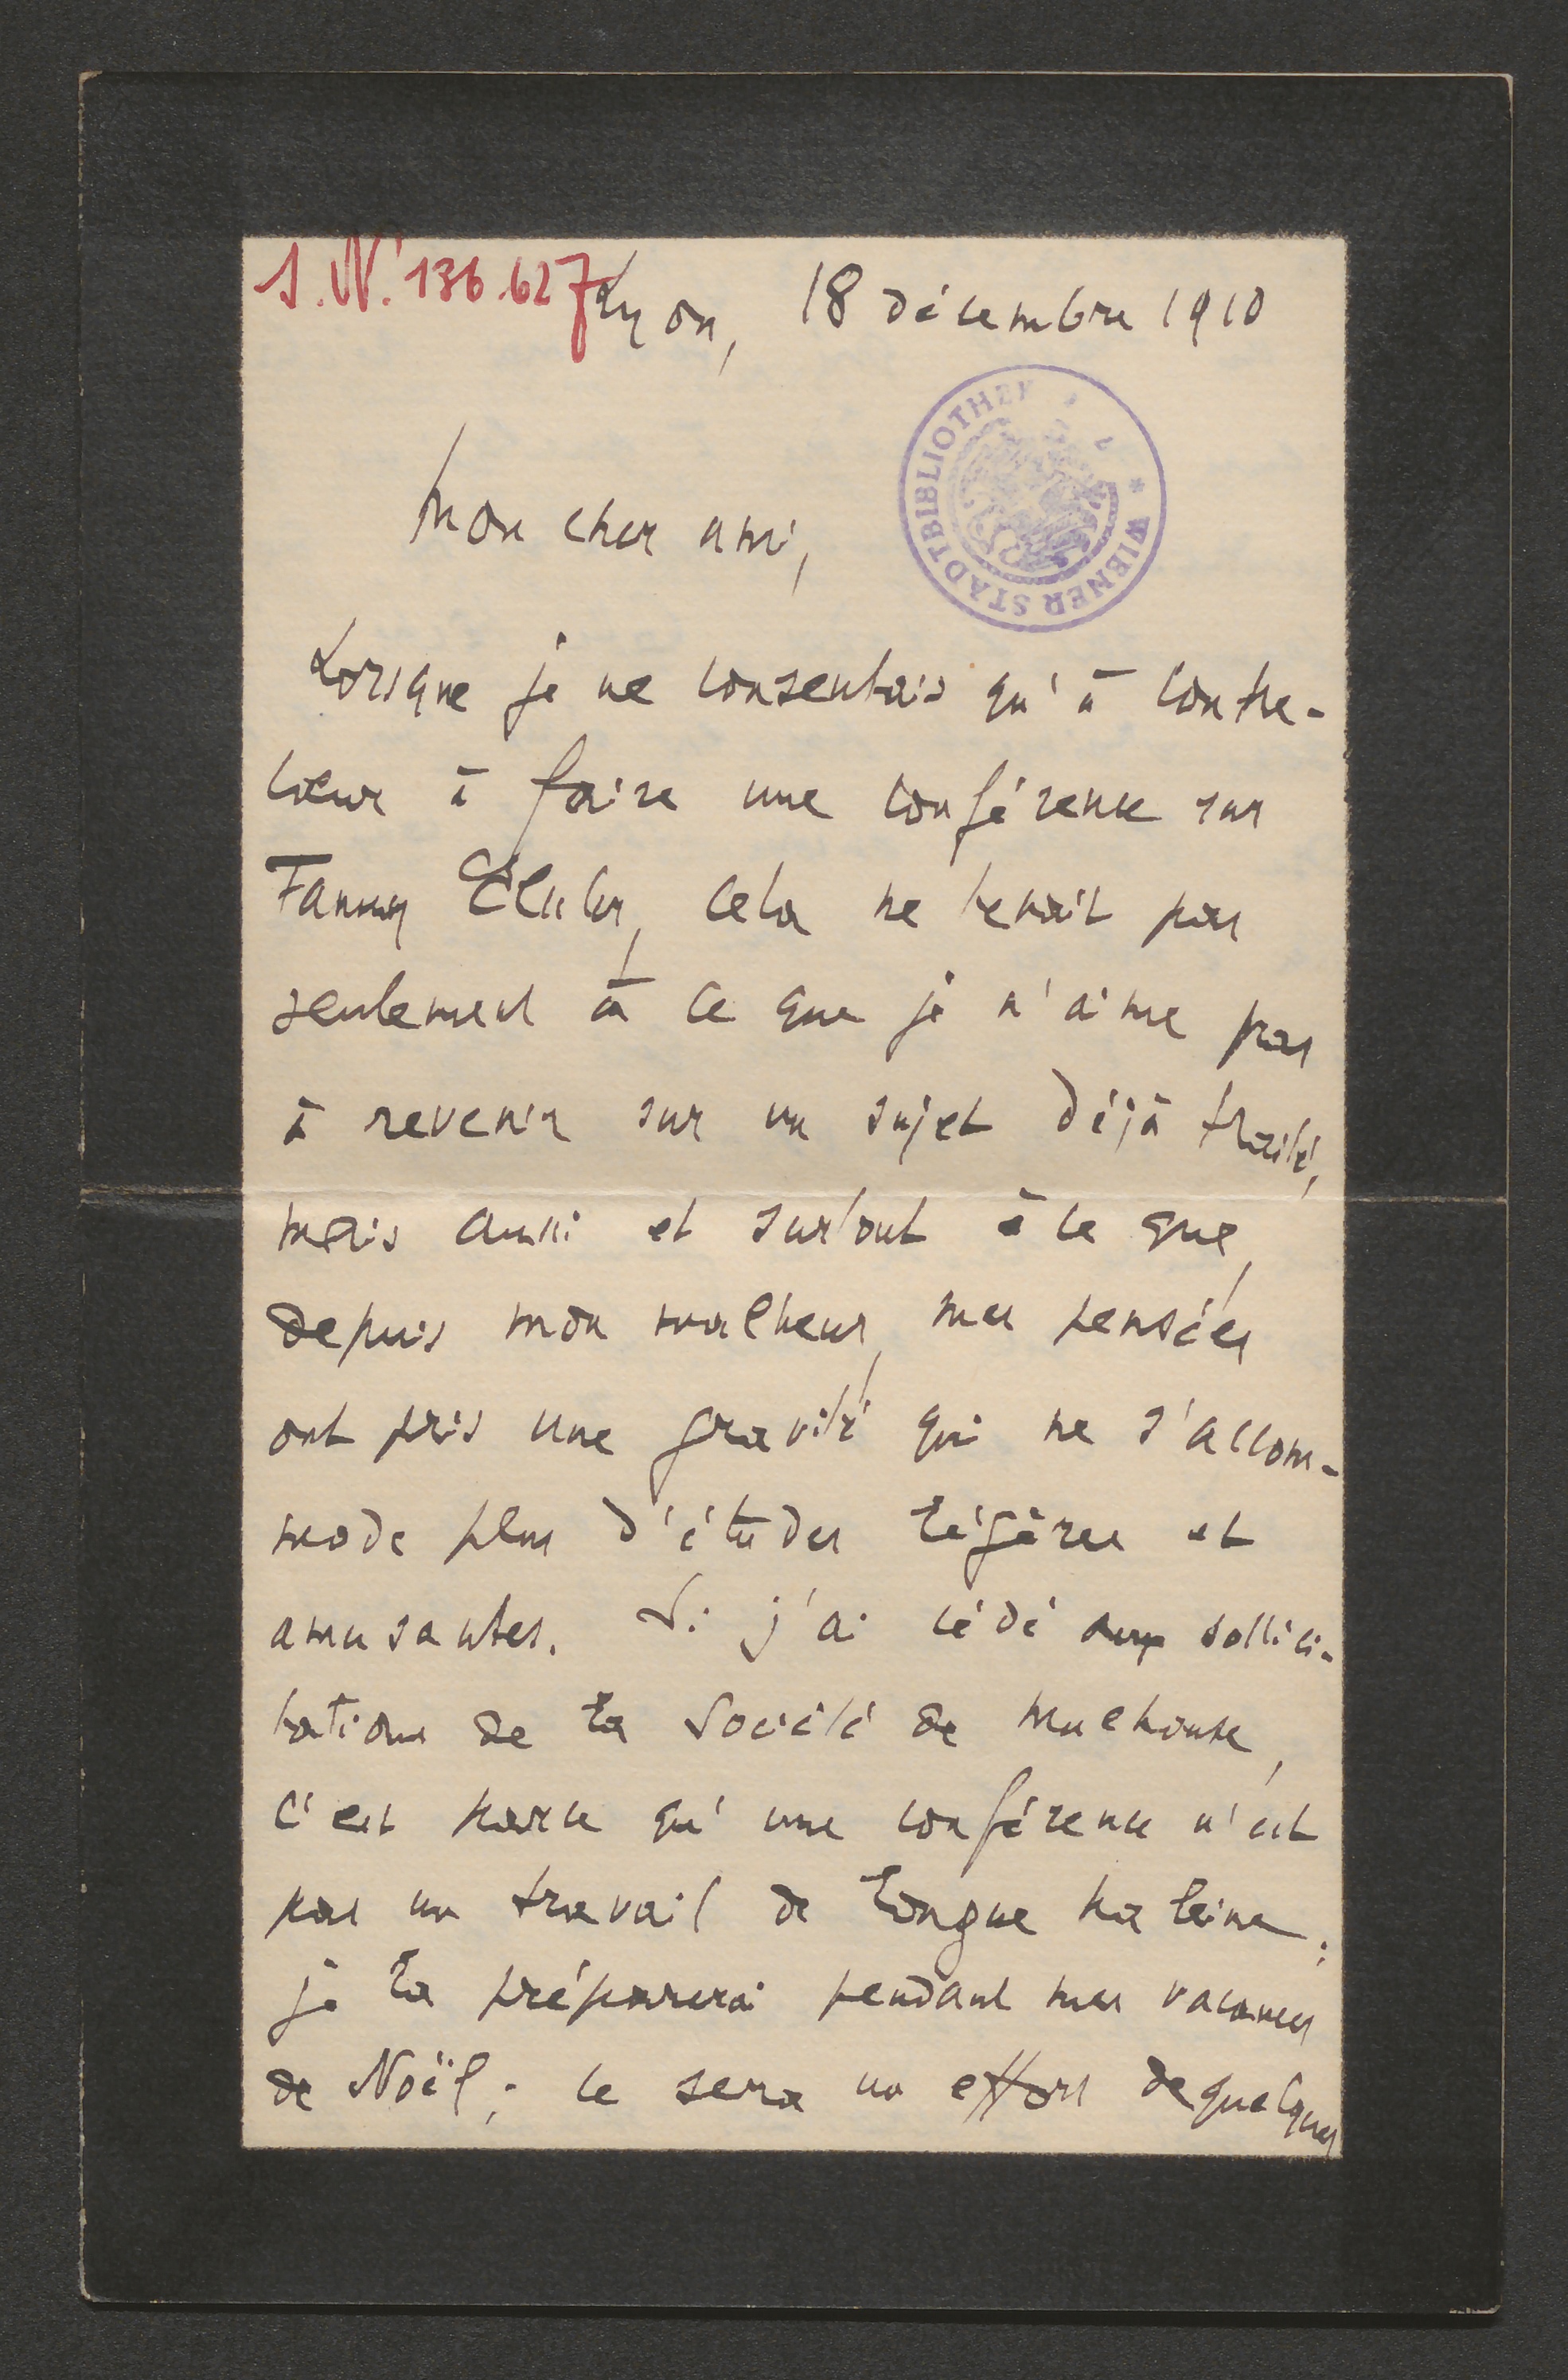 I.N. 136.627
Lyon, 18 décembre 1910
WIENER STADTBIBLIOTHEK
Mon cher ami,
Lorsque je ne consentais qu'à contre-
cœur à faire une conférence sur
Fanny Elssler, cela ne tenait pas
seulement à ce que je n'aime pas
à revenir sur un sujet déjà traité,
mais aussi et surtout à ce que,
depuis mon malheur, mes pensées
ont pris une gravité qui ne s'accom-
mode plus d'études légères et
amusantes. Si j'ai cédé aux sollici-
tations de la Société de Mulhouse,
c'est parce qu'une conférence n'est
pas un travail de longue haleine ;
je la préparerai pendant mes vacances
de Noël ; ce sera un effort de quelques